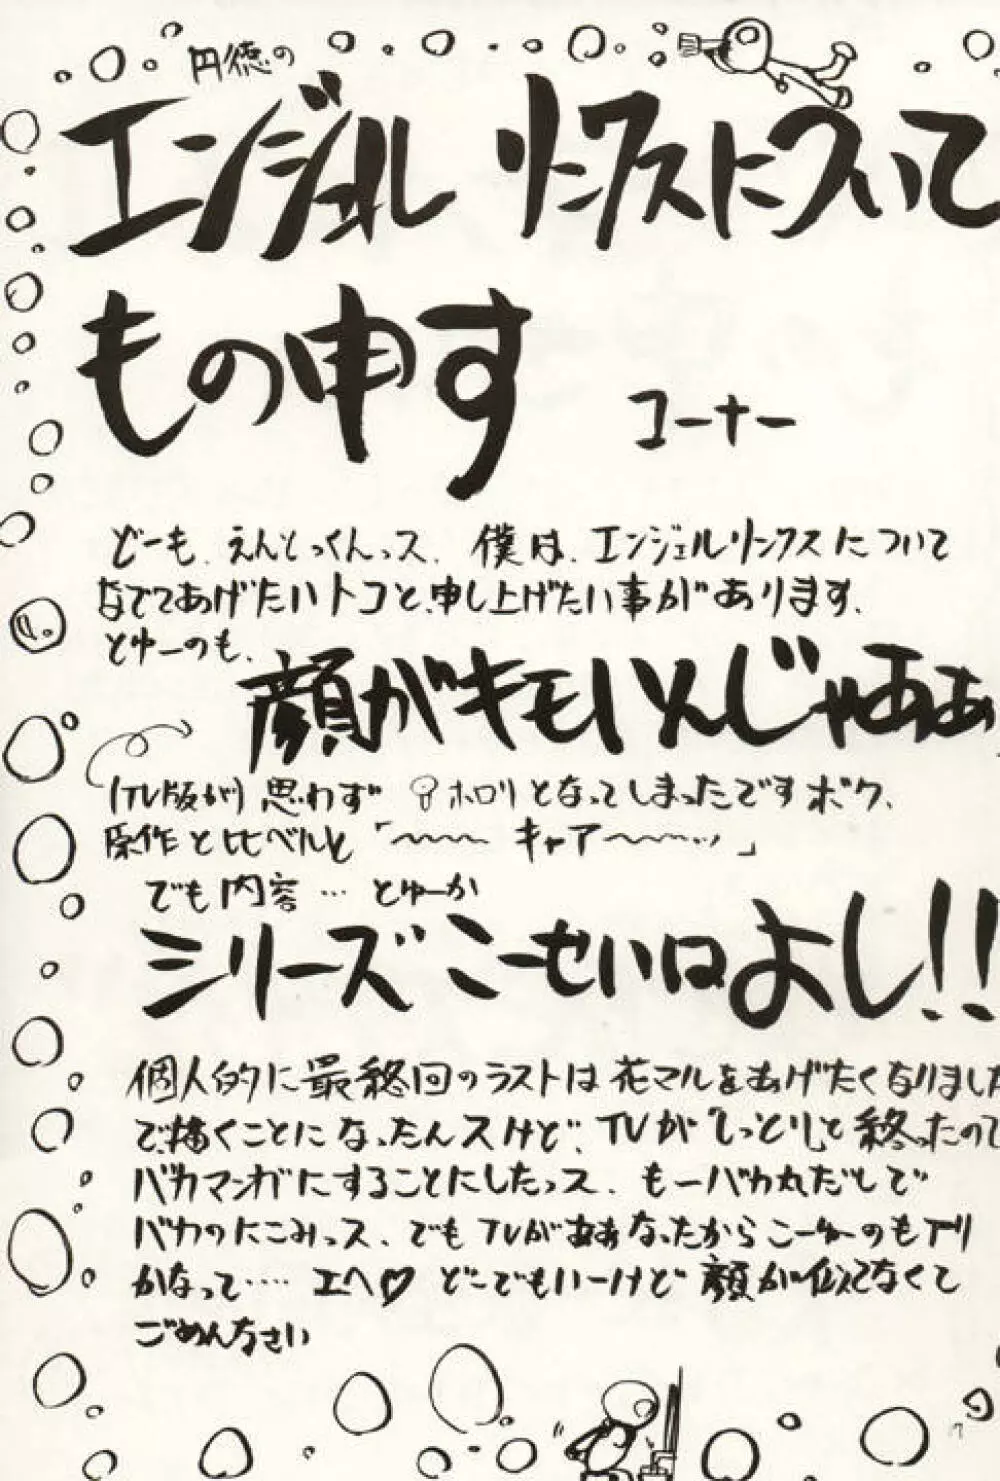 円徳の
エンジェルリンクスについて
もの申す コーナー
どーも、えんとっくんっス、僕は、エンジェルリンクスについて
なでてあげたいトコと、申し上げたい事があります、
とゆーのも、
顔がキモいんじゃあぁ
(TV版が) 思わず ホロリとなってしまったですボク、
原作と比べると「〜〜〜 キャア〜〜〜ッ」
でも内容…とゆーか
シリーズこーせいはよし!!
個人的に最終回のラストは花マルをあげたくなりました
で、描くことになったんスけど、TVが「しっとり」と終ったので
バカマンガにすることにしたっス、もーバカ丸だしで
バカのにこみっス、でもTVがああなったからこーゆーのもアリ
かなって‥‥ エヘ♡ どこでもいーけど 顔が似てなくて
ごめんなさい